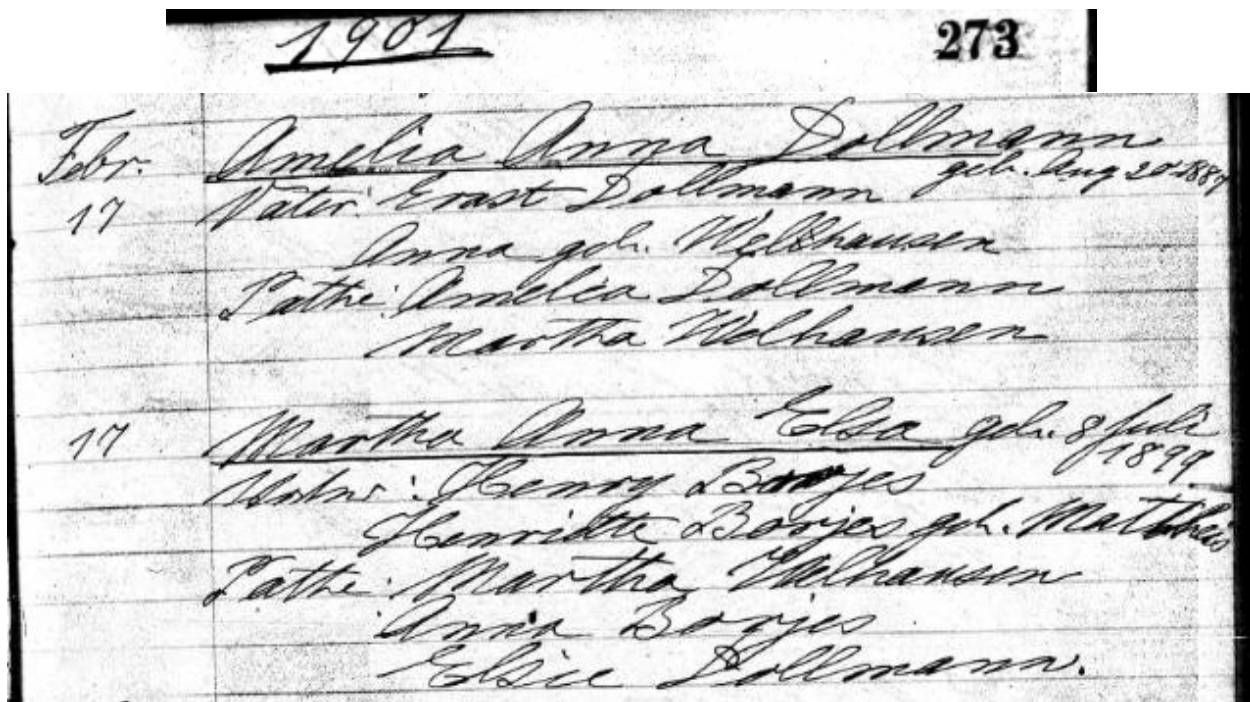 1901 273
Febr. Amelia Anna Dollmann
geb. Aug 20 1887
17 Vater: Ernst Dollmann
Anna geb. Welshausen
Pathe: Amelia Dollmann
Martha Welhausen
17 Martha Anna Elsa geb. 8 Juli
1899
: Henry Borjes
Henriette Borjes geb.
Pathe: Martha Welhausen
Anna Borjes
Elsie Dollmann.